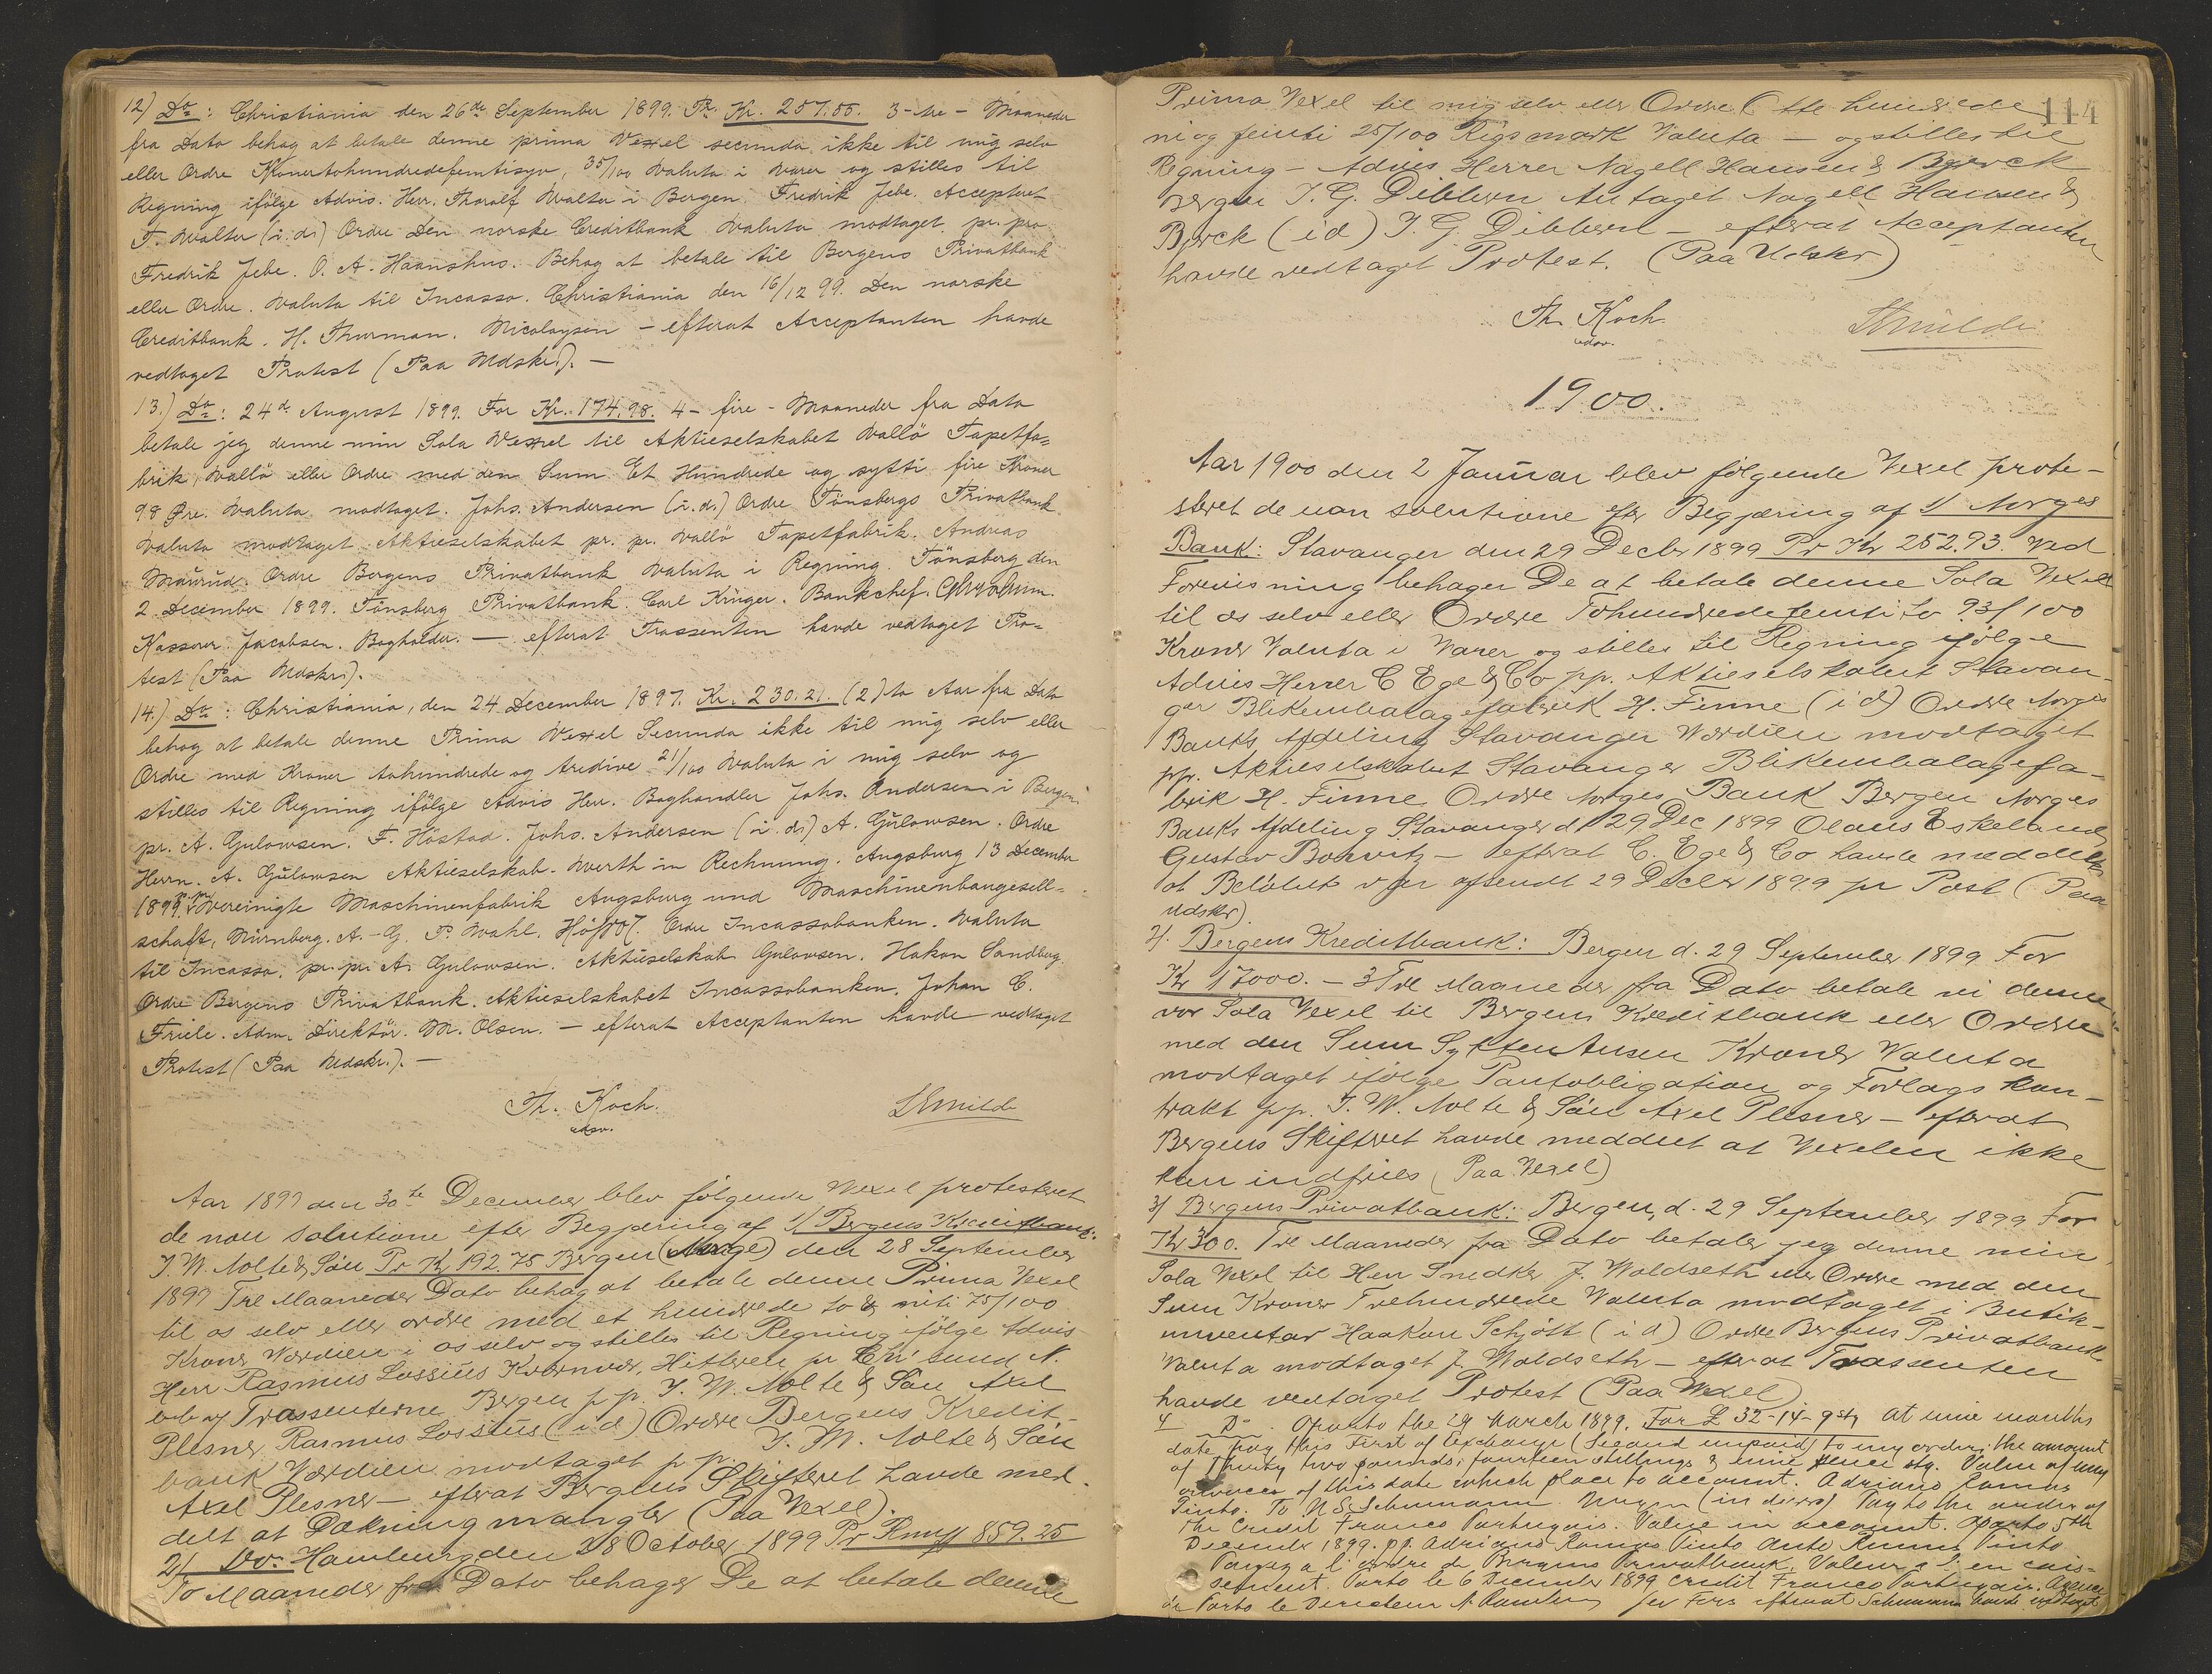 12) Do: Christiania den 26de September 1899. Pr. Kr. 257.35. 3-tre- Maaneder
fra Dato behag at betale denne prima Vexel secunda ikke til mig selv
eller Ordre Kronertohundredefemtisyv, 35/100 Valuta i varer og stilles til
Regning ifølge Advis. Herr. Thoralf Walter i Bergen. Fredrik Jebe. Acceptert
T. Walter (i.d.) Ordre Den norske Creditbank Valuta modtaget. pr. pro
Fredrik Jebe. O. A. Haanshus. Behag at betale til Bergens Privatbank
eller Ordre. Valuta til Incasso. Christiania den 16/12 99. Den norske
Creditbank. H. Thurman. Nicolaysen - efterat Acceptanten havde
vedtaget Protest (Paa Udskr.). —
13.) Do: 24de August 1899. For Kr. 174.98. 4- fire - Maaneder fra Dato
betale jeg denne min Sola Vexel til Aktieselskabet Vallö Tapetfa=
brik, Vallö eller Ordre med den Sum Et Hundrede og sytti fire Kroner
98 Øre. Valuta modtaget. Johs. Andersen (i.d.) Ordre Tönsbergs Privatbank
Valuta modtaget Aktieselskabet pr. pr. Vallö Tapetfabrik. Andreas
Maurud. Ordre Bergens Privatbank Valuta i Regning. Tönsberg den
2. December 1899. Tönsberg Privatbank. Carl Krüger. Bankchef.
Kasserer. Jacobsen. Bogholder. — efterat Trassenten havde vedtaget Pro=
test (Paa Udskr.).
14.) Do: Christiania, den 24 December 1897. Kr. 230.21. (2) to Aar fra Dato
behag at betale denne Prima Vexel Secunda ikke til mig selv eller
Ordre med Kroner tohundrede og tredive 21/100 Valuta i mig selv og
stilles til Regning ifølge Advis Herr. Boghandler Johs. Andersen i Bergen.
pr. A. Gulowsen. F. Höstad. Johs. Andersen (i.d.) A. Gulowsen. Ordre
Herrn. A. Gulowsen Aktieselskab. Werth in Rechnung. Augsburg 13 December
1899. Vereinigte Maschinenfabrik Augsburg und Maschinenbaugesell=
schaft, Nürnberg. A.-G. P. Wahl. Ordre Incassobanken. Valuta
til Incasso. pr. pr. A. Gulowsen. Aktieselskab Gulowsen. Hakon Sandberg.
Ordre Bergens Privatbank. Aktieselskabet Incassobanken. Johan C.
Friele. Adm. Direktör. M. Olsen. — efterat Acceptanten havde vedtaget
Protest (Paa Udskr.). —
Th. Koch.
SKmilde
Aar 1899 den 30te December blev følgende Vexel protesteret
de non solutione efter Begjæring af 1/ Bergens Kreditbank:
J. W. Nolte & Sön Pr Kr 192.75 Bergen (Norge) den 28 September
1899 Tre Maaneder Dato behag at betale denne Prima Vexel
til os selv eller ordre med et hundrede to & niti 75/100
Kroner Værdien i os selv og stilles til Regning ifølge Advis
Herr Rasmus Lossius Kvernvær, Hitteren pr Chr' sund N.
Trassenterne Bergen p.p. J. W. Nolte & Sön Axel
Plesner Rasmus Lossius (i d) Ordre Bergens Kredit-
bank Værdien modtaget p.p. J. W. Nolte & Sön
Axel Plesner — efterat Bergens Skifteret havde med-
delt at Dækning mangler (Paa Vexel).
2/ Do: Hamburg den 28 October 1899 Pr Rmk 859.25
To Maaneder fra Dato behager De at betale denne
114
Prima Vexel til mig selv eller Ordre Otte hundrede
ni og femti 25/100 Rigsmark Valuta — og stilles til
Regning - Advis Herrer Nagell Hansen & Bjerck
Bergen J. G. Dibbern Antaget Nagell Hansen &
Bjerck (i d) J. G. Dibbern — efterat Acceptanten
havde vedtaget Protest. (Paa Udskr)
Th. Koch
SKmilde
1900.
Aar 1900 den 2 Januar blev følgende Vexel prote-
steret de non solutione efter Begjæring af 1/ Norges
Bank: Stavanger den 29 Decbr 1899 Pr Kr 252.93. Ved
Forevisning behager De at betale denne Sola Vexel
til os selv eller Ordre Tohundredefemtito 93/100
Kroner Valuta i Varer og stilles til Regning ifølge
Advis Herrer C Ege & Co pp. Aktieselskabet Stavan-
ger Blikemballagefabrik H. Finne (i d) Ordre Norges
Banks Afdeling Stavanger Værdien modtaget
pp. Aktieselskabet Stavanger Blikemballagefa-
brik H. Finne Ordre Norges Bank Bergen Norges
Banks Afdeling Stavanger d 29 Dec 1899 Olaus Eskeland
Gustav — efterat C. Ege & Co havde meddelt
at Beløbet er afsendt 29 Decbr 1899 pr Post (Paa
Udskr).
2/. Bergens Kreditbank: Bergen d. 29 September 1899 For
Kr 17000. — 3 Tre Maaneder fra Dato betale vi denne
vor Sola Vexel til Bergens Kreditbank eller Ordre
med den Sum Sytten tusen Kroner Valuta
modtaget ifølge Pantobligation og Forlags kon-
trakt pp. J. W. Nolte & Sön Axel Plesner — efterat
Bergens Skifteret havde meddelt at Vexelen ikke
kan indfries (Paa Vexel)
3/ Bergens Privatbank: Bergen, d. 29 September 1899 For
Kr 300. Tre Maaneder fra Dato betaler jeg denne min
Sola Vexel til Herr Snedker J. Woldseth eller Ordre med den
Sum Kroner Trehundrede Valuta modtaget i Butik-
inventar Haakon Schjött (i d) Ordre Bergens Privatbank
Valuta modtaget J. Woldseth — efterat Trassenten
havde vedtaget Protest (Paa Vexel)
4 Do. Oporto the 29 March 1899. For £ 32-14-9 stg At nine months
date pay this First of Exchange (Second unpaid) to my order, the amount
of Thirty two pounds, fourteen shillings & nine pence stg. Value of my
invoice of this date which place to account. Adriano Ramos
Pinto. To N. S. Schumann. Bergen (in dorso) Pay to the order of
the Credit Franco Portugais. Value in account. Oporto 5th
December 1899. p.p. Adriano Ramos Pinto Anto Ramos Pinto
Payez a l'ordre de Bergens Privatbank, Valeur a l'en cais-
sement. Porto le 6 December 1899 Credit Franco Portugais. Agence
de Porto le Directeur efterat Schumann havde vedtaget